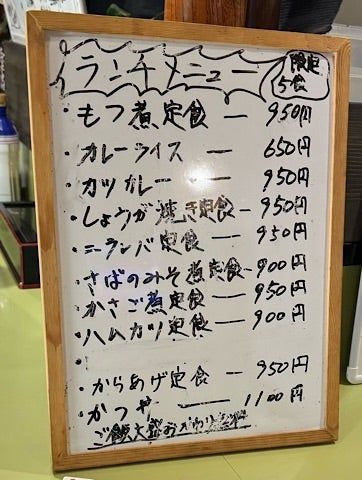 ランチメニュー
限定
5食
・もつ煮定食 ― 950円
・カレーライス ― 650円
・カツカレー ― 950円
・しょうが焼き定食 ― 950円
・ニラレバ定食 ― 950円
・さばのみそ煮定食 ― 900円
・かさご煮定食 ― 950円
・ハムカツ定食 ― 900円
・からあげ定食 ― 950円
・かつや ― 1100円
ご飯大盛おかわり無料